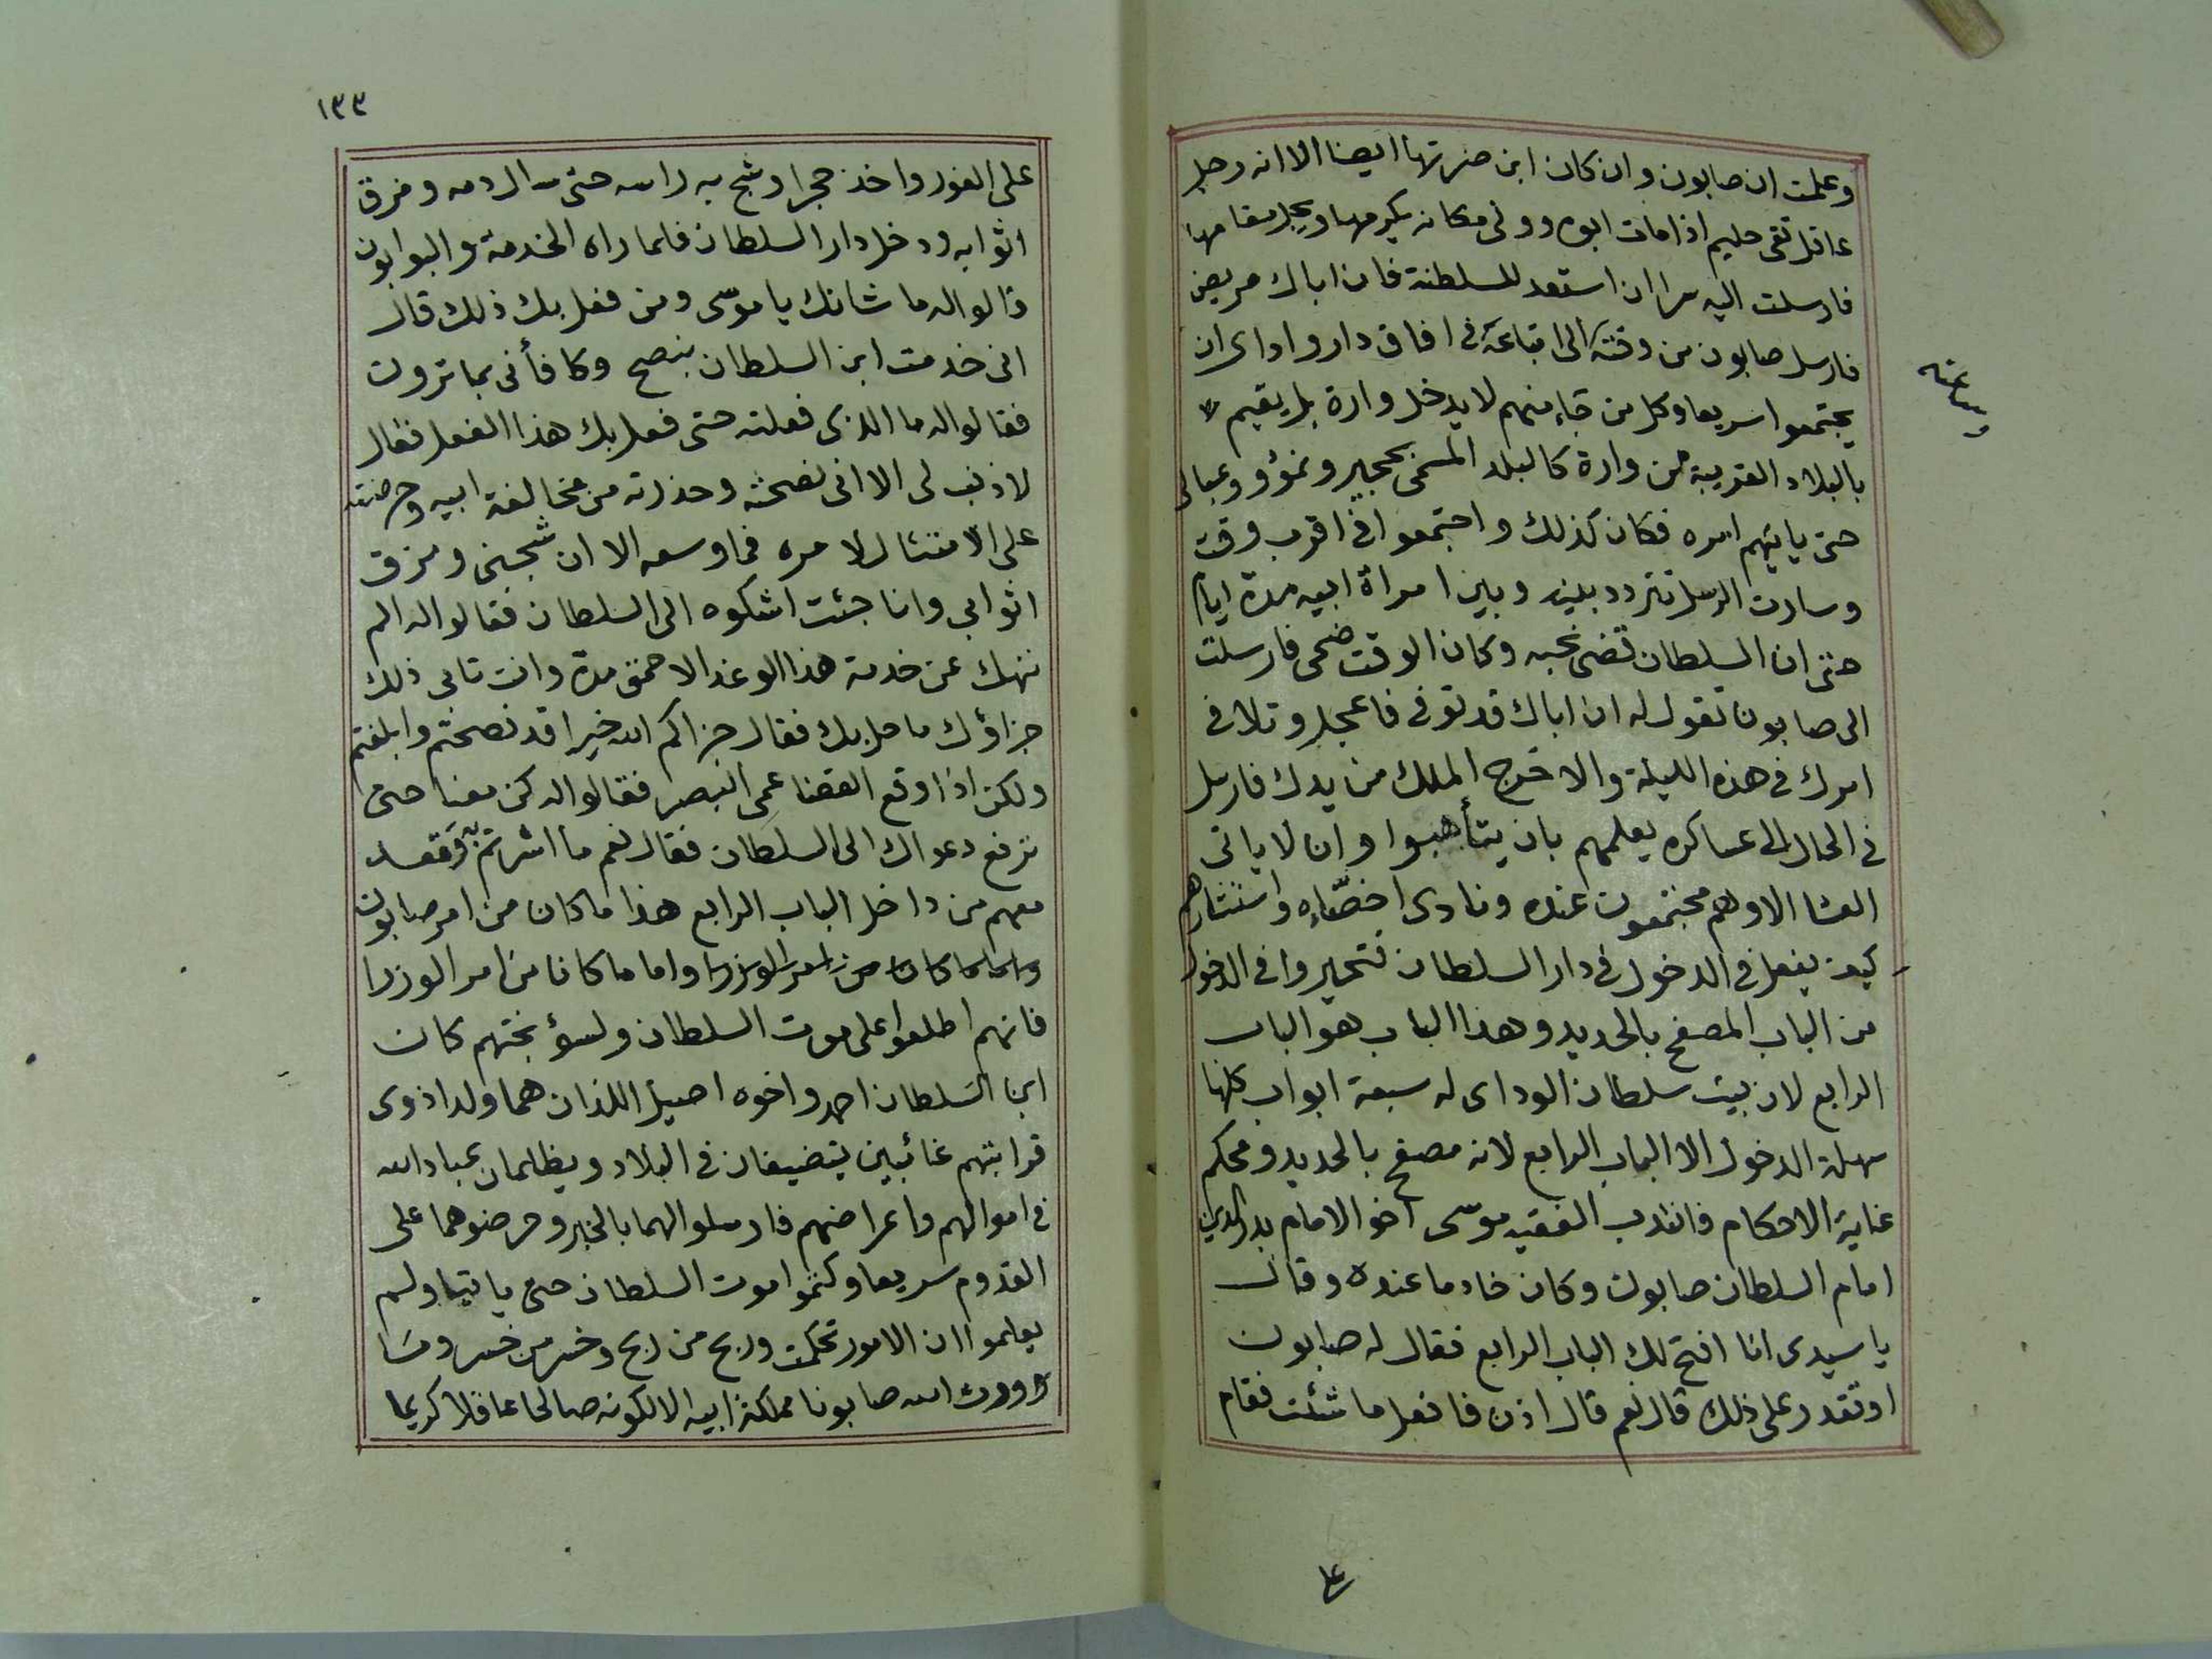 وعلمت ان صابون وان كان ابن ضرتها ايضا الا انه رجل
عاقل تقى حليم اذا مات ابوه وولى مكانه يكرمها ويجل مقامها
فارسلت اليه سرا ان استعد للسلطنة فان اباك مريض
فارسل صابون من وقته الى اتباعه فى افاق دار واداى ان
وساعته
يجتمعوا سريعا وكل من جاء منهم لا يدخل وارة بل يقيم
بالبلاد القريبة من وارة كالبلد المسمى بججير ونمرؤ وعبالى
حتى ياتيهم امره فكان كذلك واجتمعوا فى اقرب وقت
وسارت الرسل تتردد بينه وبين امراة ابيه مدة ايام
حتى ان السلطان قضى نحبه وكان الوقت ضحى فارسلت
الى صابون تقول له ان اباك قد توفى فاعجل وتلافى
امرك فى هذه الليلة والا خرج الملك من يدك فارسل
فى الحال الى عساكره يعلمهم بان يتأهبوا وان لا ياتى
العشا الا وهم مجتمعون عنده ونادى اخصّاءه واستشارهم
كيف يفعل فى الدخول فى دار السلطان فتحيروا فى الدخول
من الباب المصفح بالحديد وهذا الباب هو الباب
الرابع لان بيت سلطان الوداى له سبعة ابواب كلها
سهلة الدخول الا الباب الرابع لانه مصفح بالحديد ومحكم
غاية الاحكام فانتدب الفقيه موسى اخو الامام بدر الدين
امام السلطان صابون وكان خادما عنده وقال
يا سيدى انا افتح لك الباب الرابع فقال له صابون
اوتقدر على ذلك قال نعم قال اذن فافعل ما شئت فقام
على
١٣٣
على الفور واخذ حجرا وشج به راسه حتى سال دمه ومزق
اثوابه ودخل دار السلطان فلما راه الخدمة والبوابون
قالوا له ما شانك يا موسى ومن فعل بك ذلك قال
انى خدمت ابن السلطان بنصح وكافأنى بما ترون
فقالوا له ما الذى فعلته حتى فعل بك هذا الفعل فقال
لا ذنب لى الا انى نصحته وحذرته من مخالفة ابيه وحرضته
على الامتثال لامره فما وسعه الا ان شجنى ومزق
اثوابى وانا جئت اشكوه الى السلطان فقالوا له الم
ننهك عن خدمة هذا الوغد الاحمق مدة وانت تابى ذلك
جزاؤك ما حل بك فقال جزاكم الله خيرا قد نصحتم وابلغتم
ولكن اذا وقع القضا عمى البصر فقالوا له كن معنا حتى
نرفع دعواك الى السلطان فقال نعم ما اشرتم به وقعد
معهم من داخل الباب الرابع هذا ما كان من امر صابون
واما ما كان من امر الوزرا واما ما كان من امر الوزرا
فانهم اطلعوا على موت السلطان ولسؤ بختهم كان
ابنا السلطان احمد واخوه اصيل اللذان هما ولدا ذوى
قرابتهم غائبين يتضيفان فى البلاد ويظلمان عباد الله
فى اموالهم واعراضهم فارسلوا لهما بالخبر وحرضوهما على
القدوم سريعا وكتموا موت السلطان حتى ياتيا ولم
يعلموا ان الامور تحكمت وربح من ربح وخسر من خسر وما
اورث الله صابونا مملكة ابيه الا لكونه صالحا عاقلا كريما